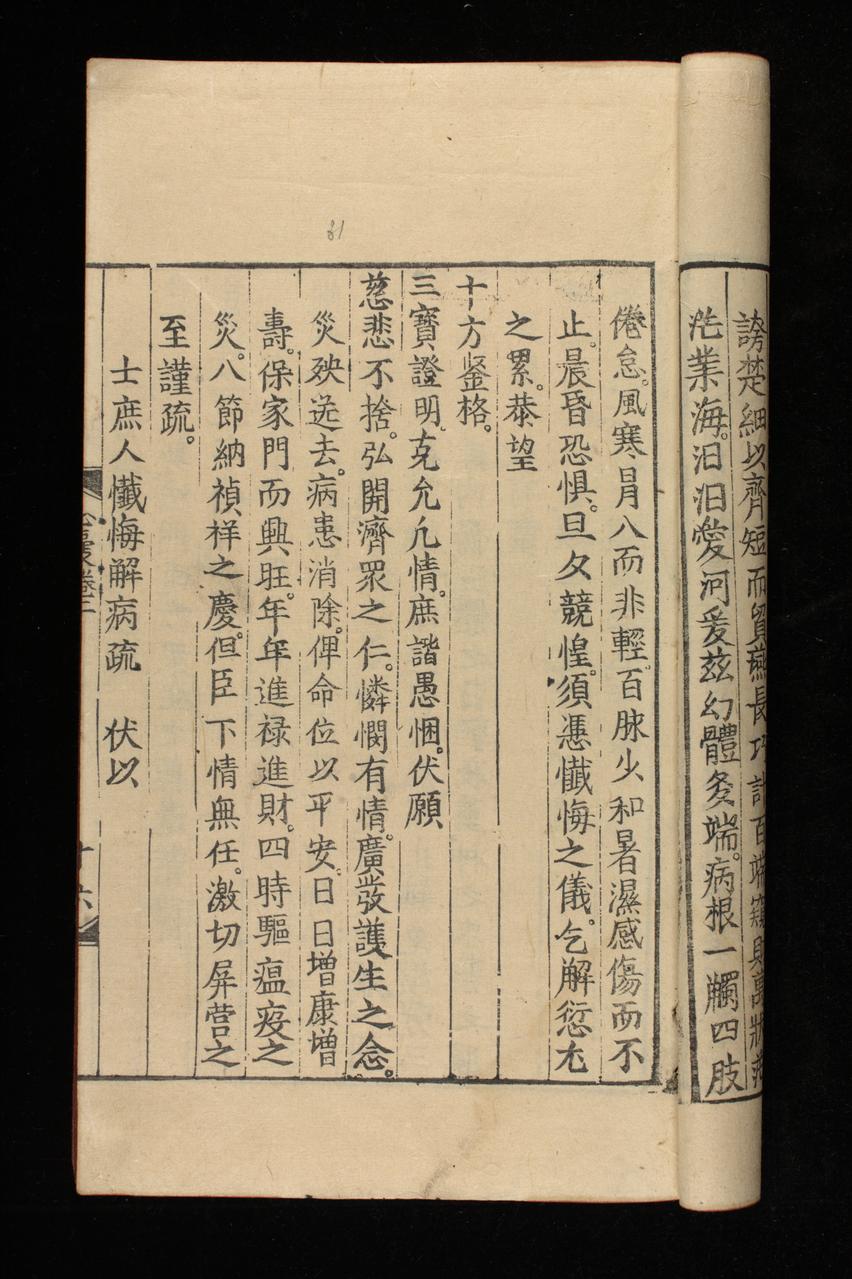 謗楚細以齊短而貿燕長巧計百端窺
茫業海汩汩愛河爰兹幻體多端病根一觸四肢
倦怠風寒冐入而非輕百脉少和暑濕感傷而不
止晨昏恐惧旦夕兢惶須憑懺悔之儀乞解愆尤
之累恭望
十方鉴格
三寳證明克允凢情庶諧愚悃伏願
慈悲不捨弘開濟眾之仁憐憫有情廣發護生之念
災殃送去病患消除俾命位以平安日日增康增
壽保家門而興旺年年進禄進財四時驅瘟疫之
災八節納禎祥之慶但臣下情無任激切屏营之
至謹疏
士庶人懺悔解病疏　伏以
卷二
十六
81